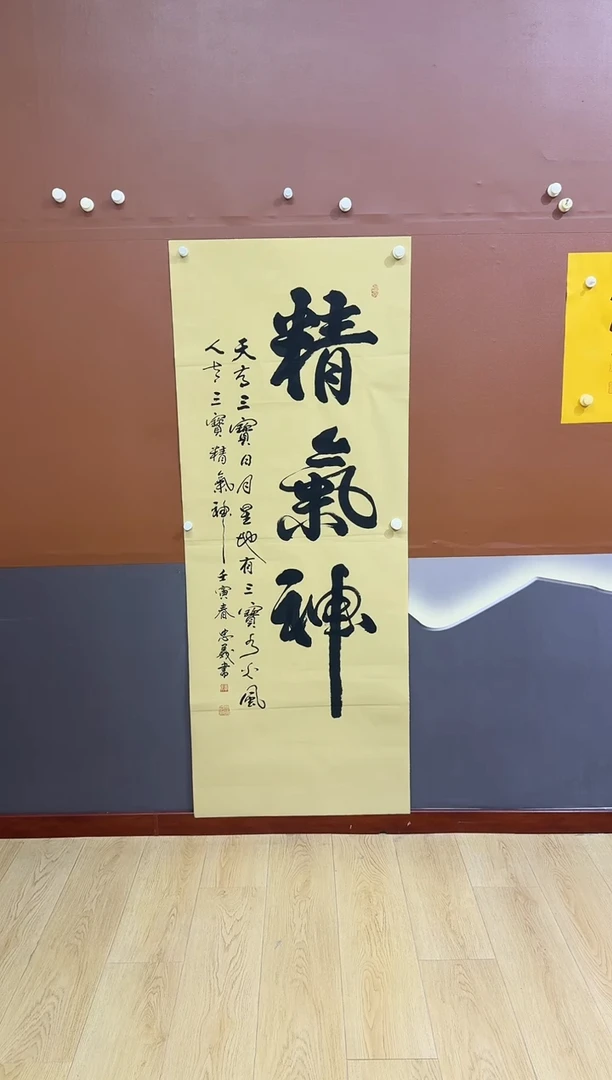 精氣神
天有三寶日月星地有三寶水火風
人有三寶精氣神壬寅春忠義書